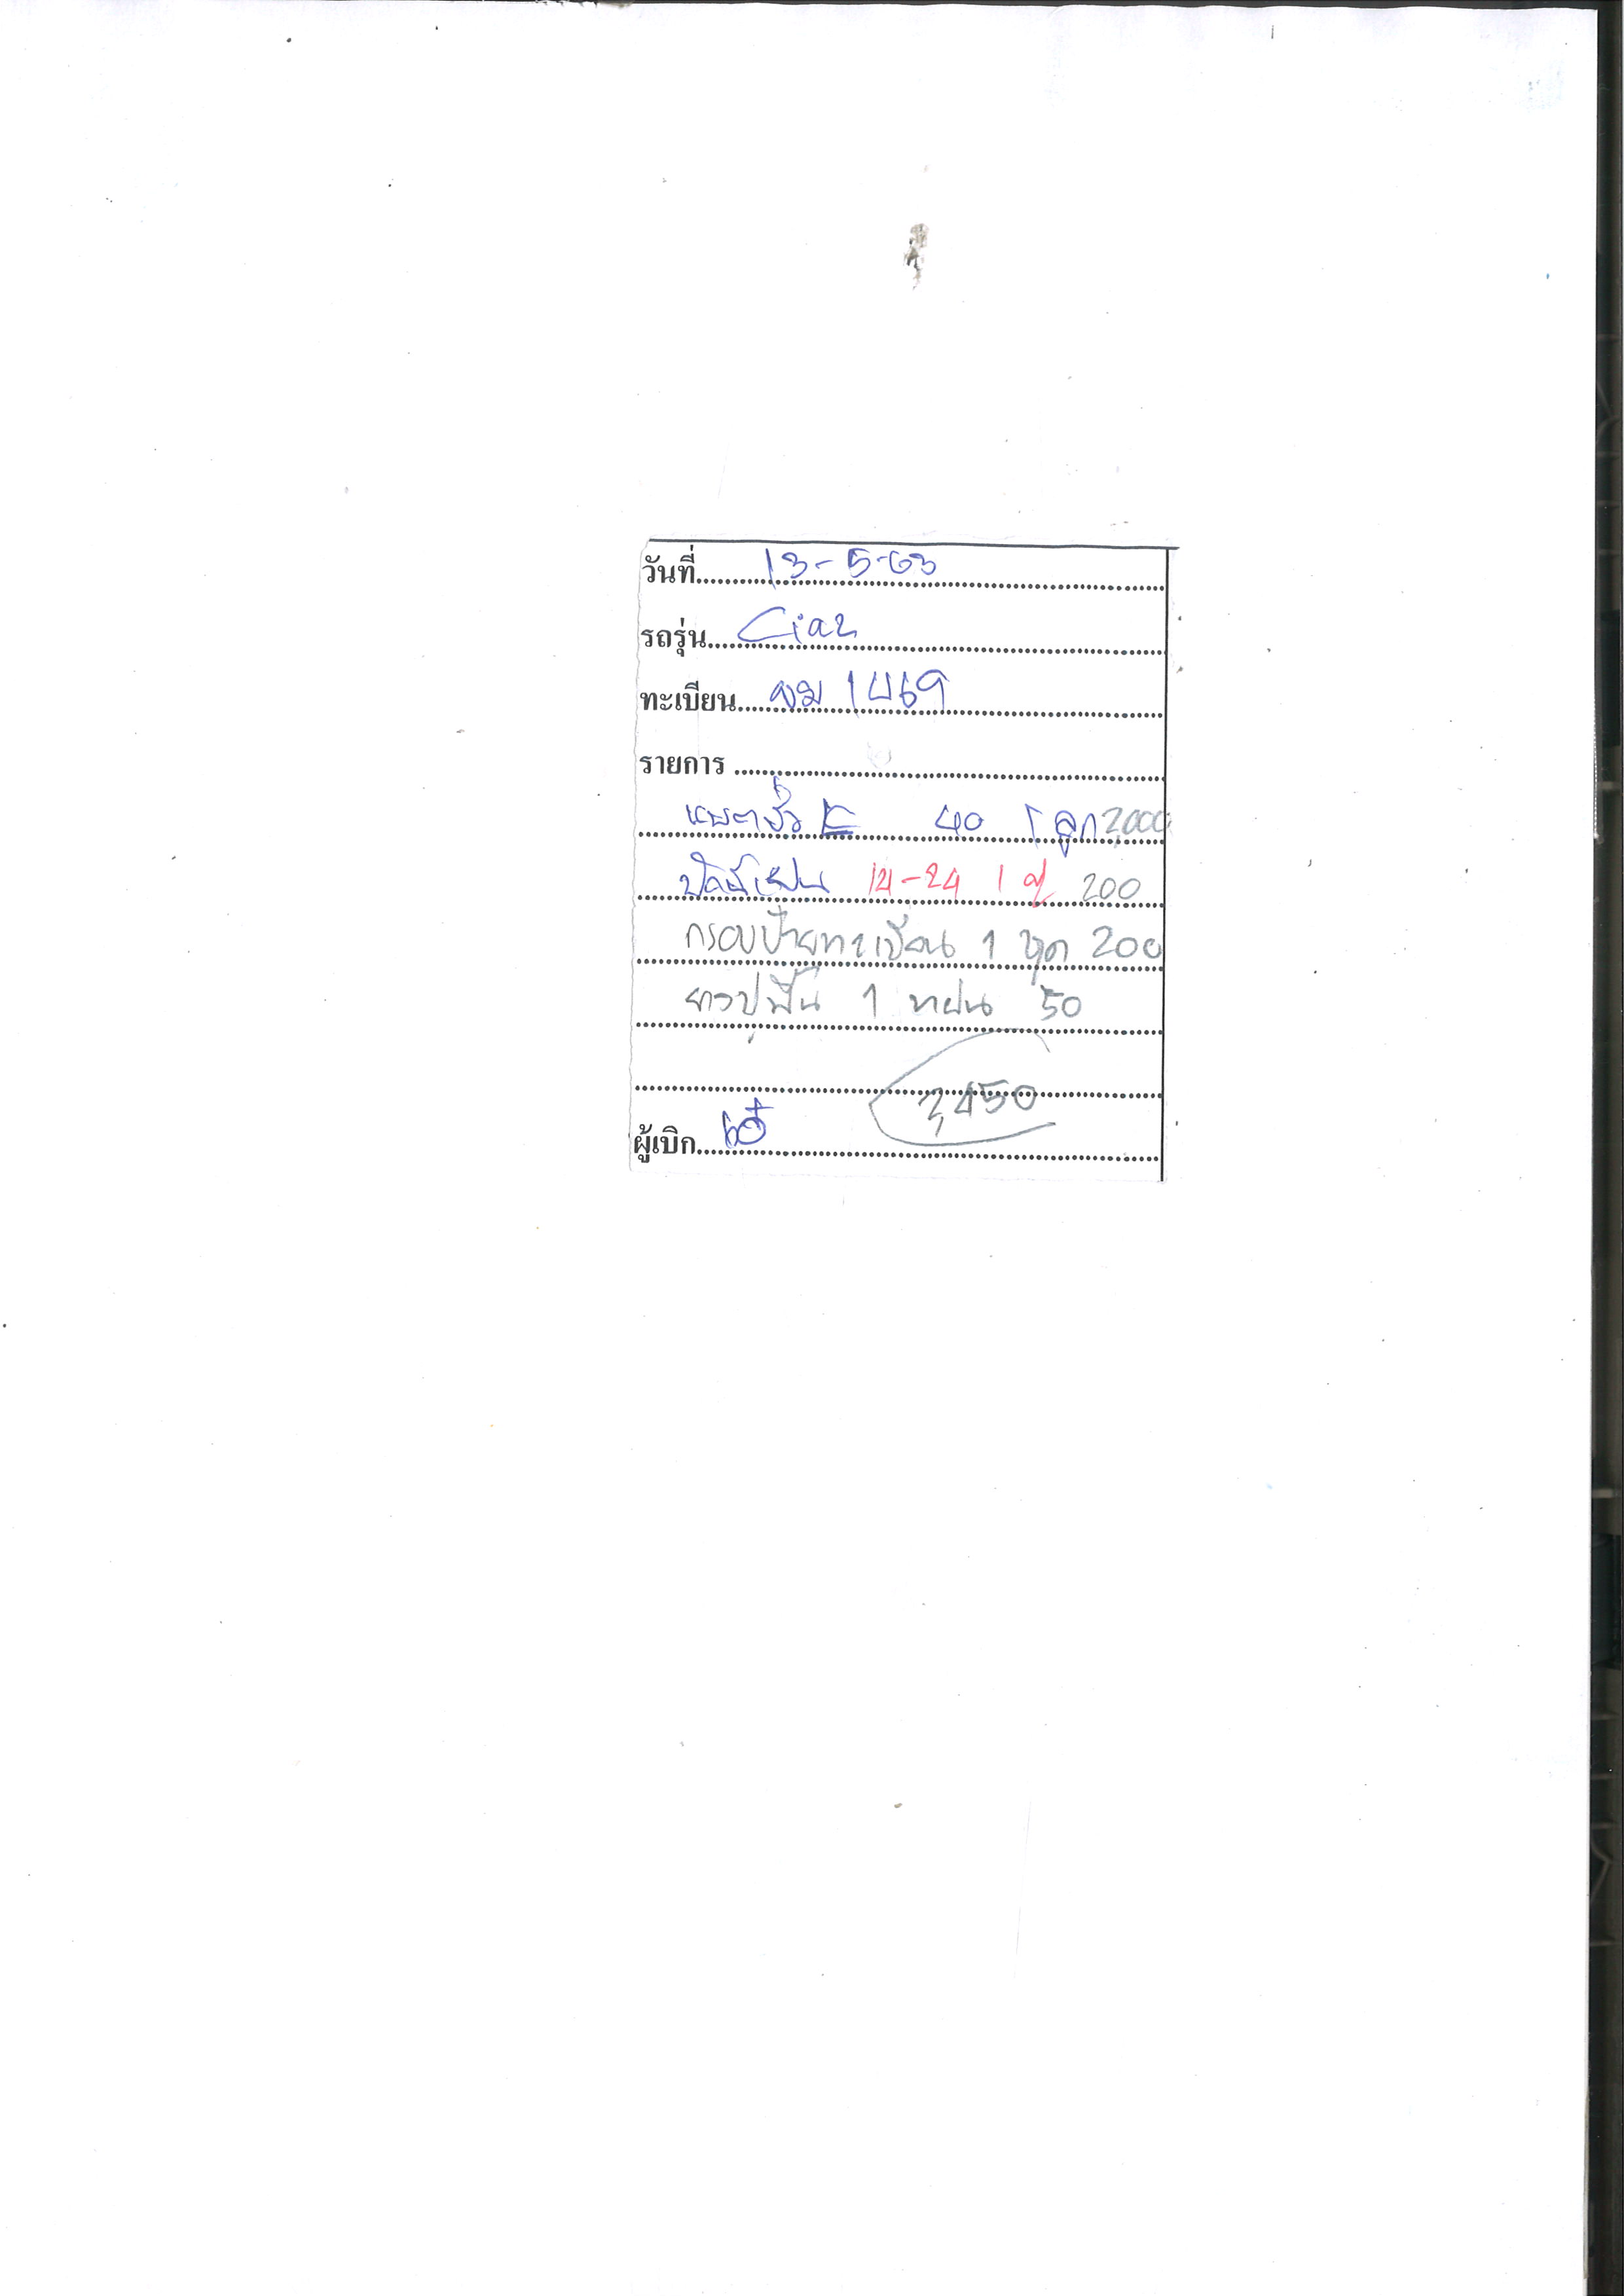 วันที่ 13-5-63
รถรุ่น Ciaz
ทะเบียน ขม 1469
รายการ
แบตขั้ว 40 1 ลูก 2,000
ปัดน้ำฝน 14-24 1 คู่ 200
กรอบป้ายทะเบียน 1 ชุด 200
ยางปูพื้น 1 แผ่น 50
2,450
ผู้เบิก